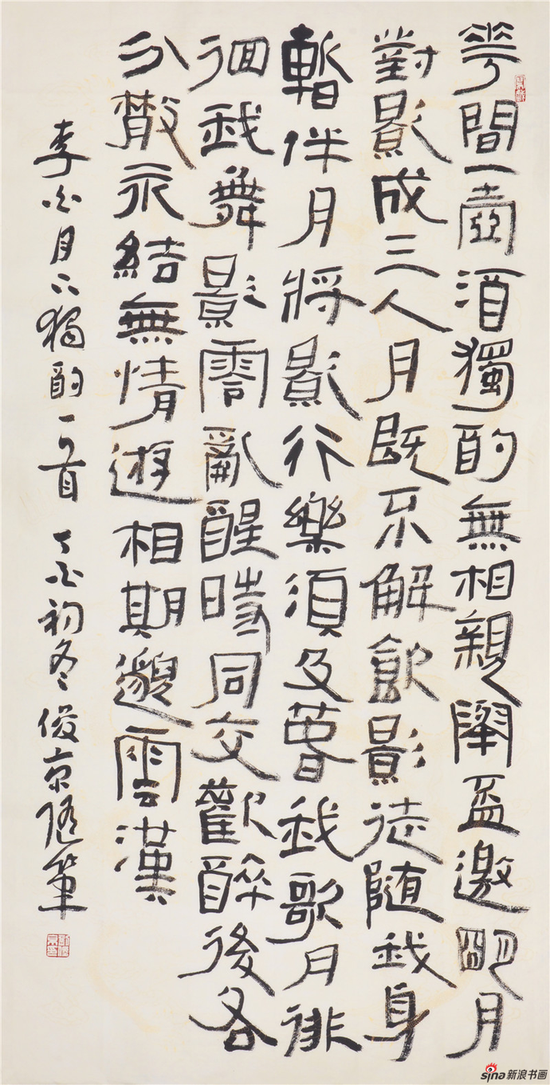 花間一壺酒獨酌無相親舉盃邀朙月
對影成三人月既不解飲影徒随我身
暫伴月將影行樂須及春我歌月徘
徊我舞影零亂醒時同交歡醉後各
分散永結無情遊相期邈雲漢
李白月下獨酌一首 丁酉初冬俊京随筆
sina新浪书画